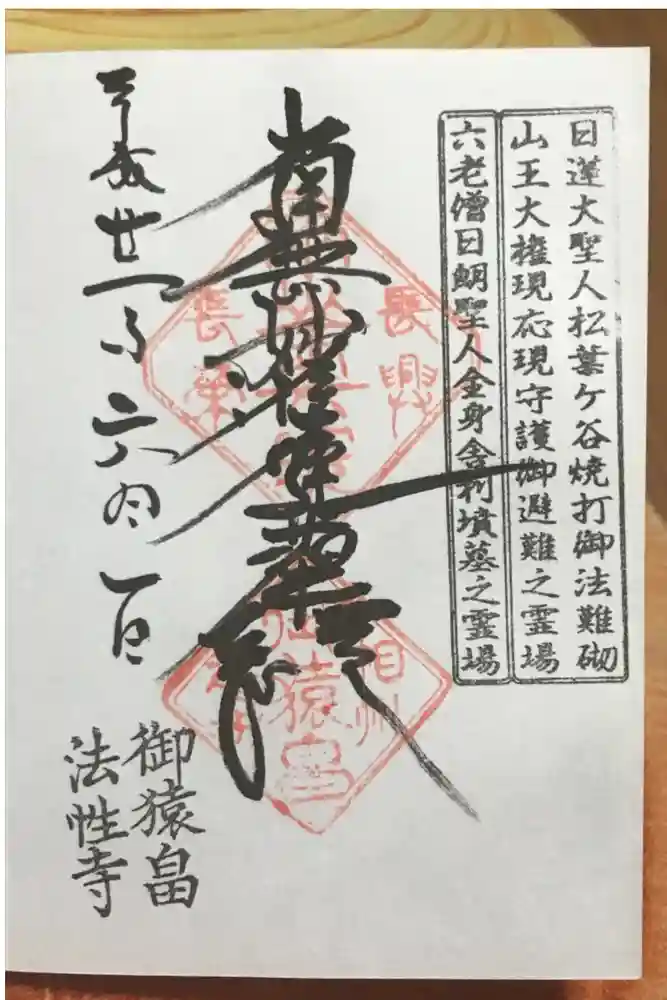 日蓮大聖人松葉ケ谷焼打御法難砌
山王大権現応現守護御避難之霊場
六老僧日朗聖人全身舎利墳墓之霊場
南無妙法蓮華経
長興
長栄
相州
御猿畠
六月一日
御猿畠
法性寺